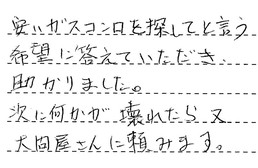 安いガスコンロを探してと言う
希望に答えていただき
助かりました。
次に何かが壊れたら又
大問屋さんに頼みます。